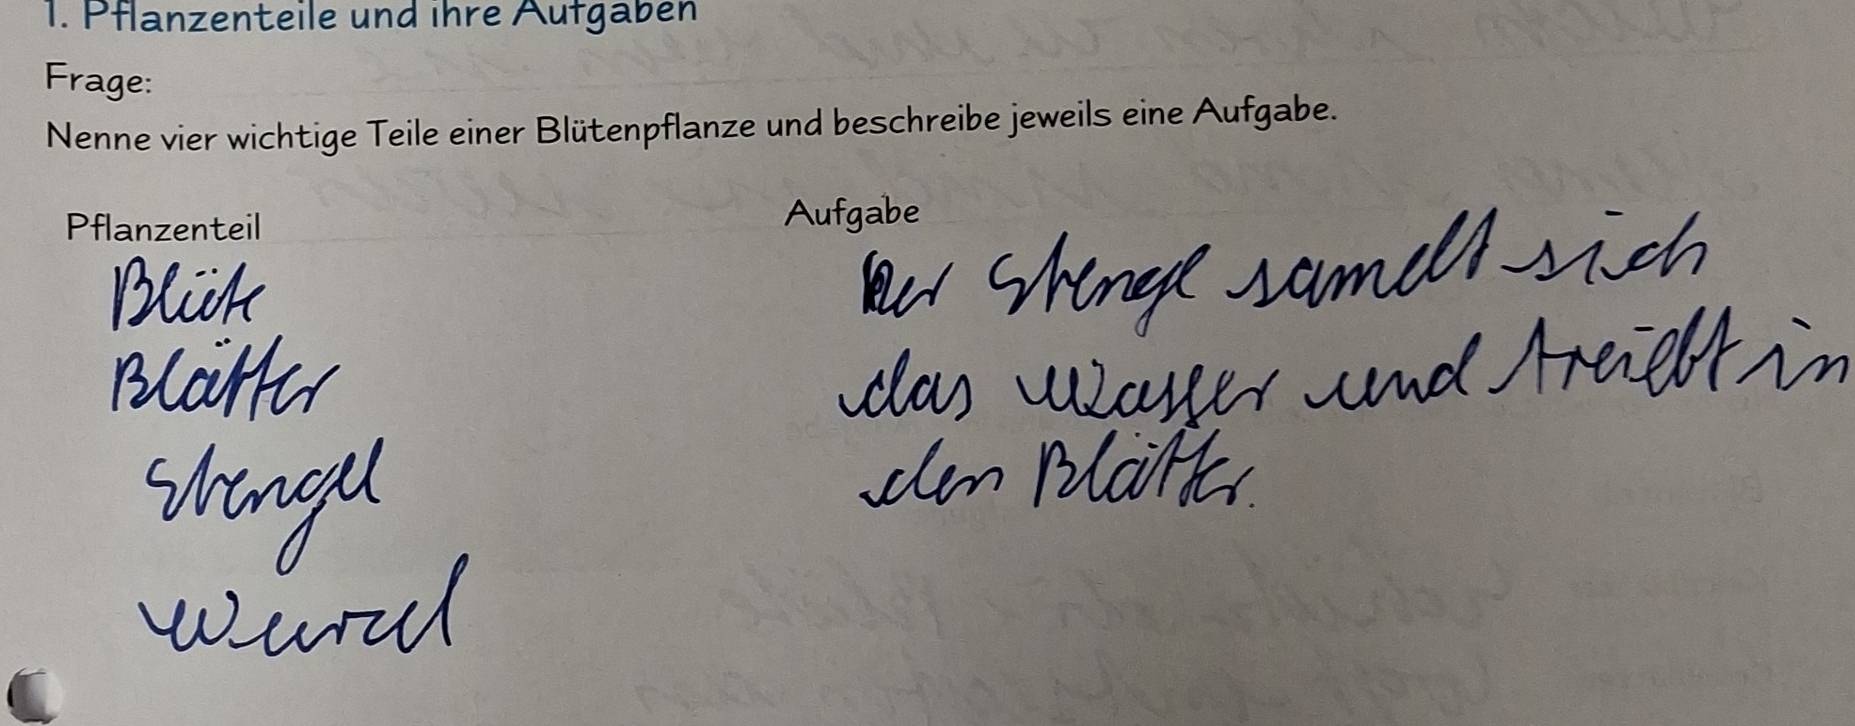 1. Pflanzenteile und ihre Aufgaben
Frage:
Nenne vier wichtige Teile einer Blütenpflanze und beschreibe jeweils eine Aufgabe.
Pflanzenteil
Blüte
Blätter
Stengel
Wurzel
Aufgabe
Der Stengel samelt sich
das Wasser und treibt in
den Blätter.